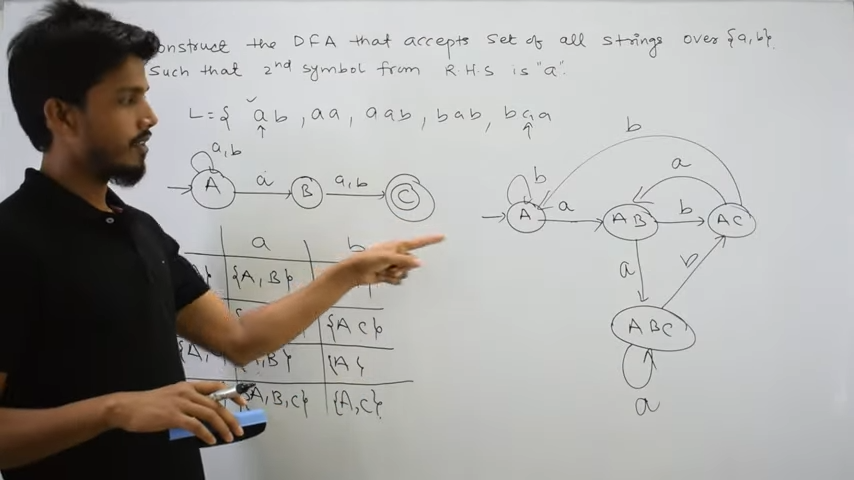 onstruct the DFA that accepts set of all strings over {a,b}.
Such that 2nd symbol from R.H.S is "a".
L={ ab, aa, aab, bab, baa
a,b
A a B a,b C
a b
{A,B}
{A C}
{A, B} {A}
{A,B,C} {A,C}
b
b a
A a AB b AC
a b
ABC
a